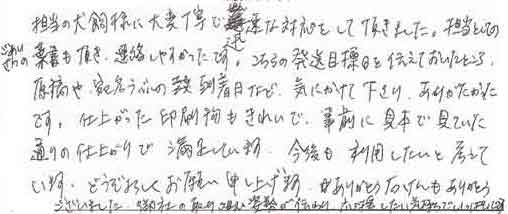 担当の犬飼様に大変丁寧で迅速な対応をして頂きました。担当としての
ごあいさつの葉書も頂き、連絡しやすかったです。こちらの発送目標日を伝えておいたところ、
原稿や宛名うぶの 到着日など、気にかけて下さり、ありがたかった
です。仕上がった印刷物もきれいで、事前に見本で見ていた
通りの仕上がりで満足しています。今後も利用したいと考えて
います。どうぞよろしくお願い申し上げます。石けんもありがとう
ございました。